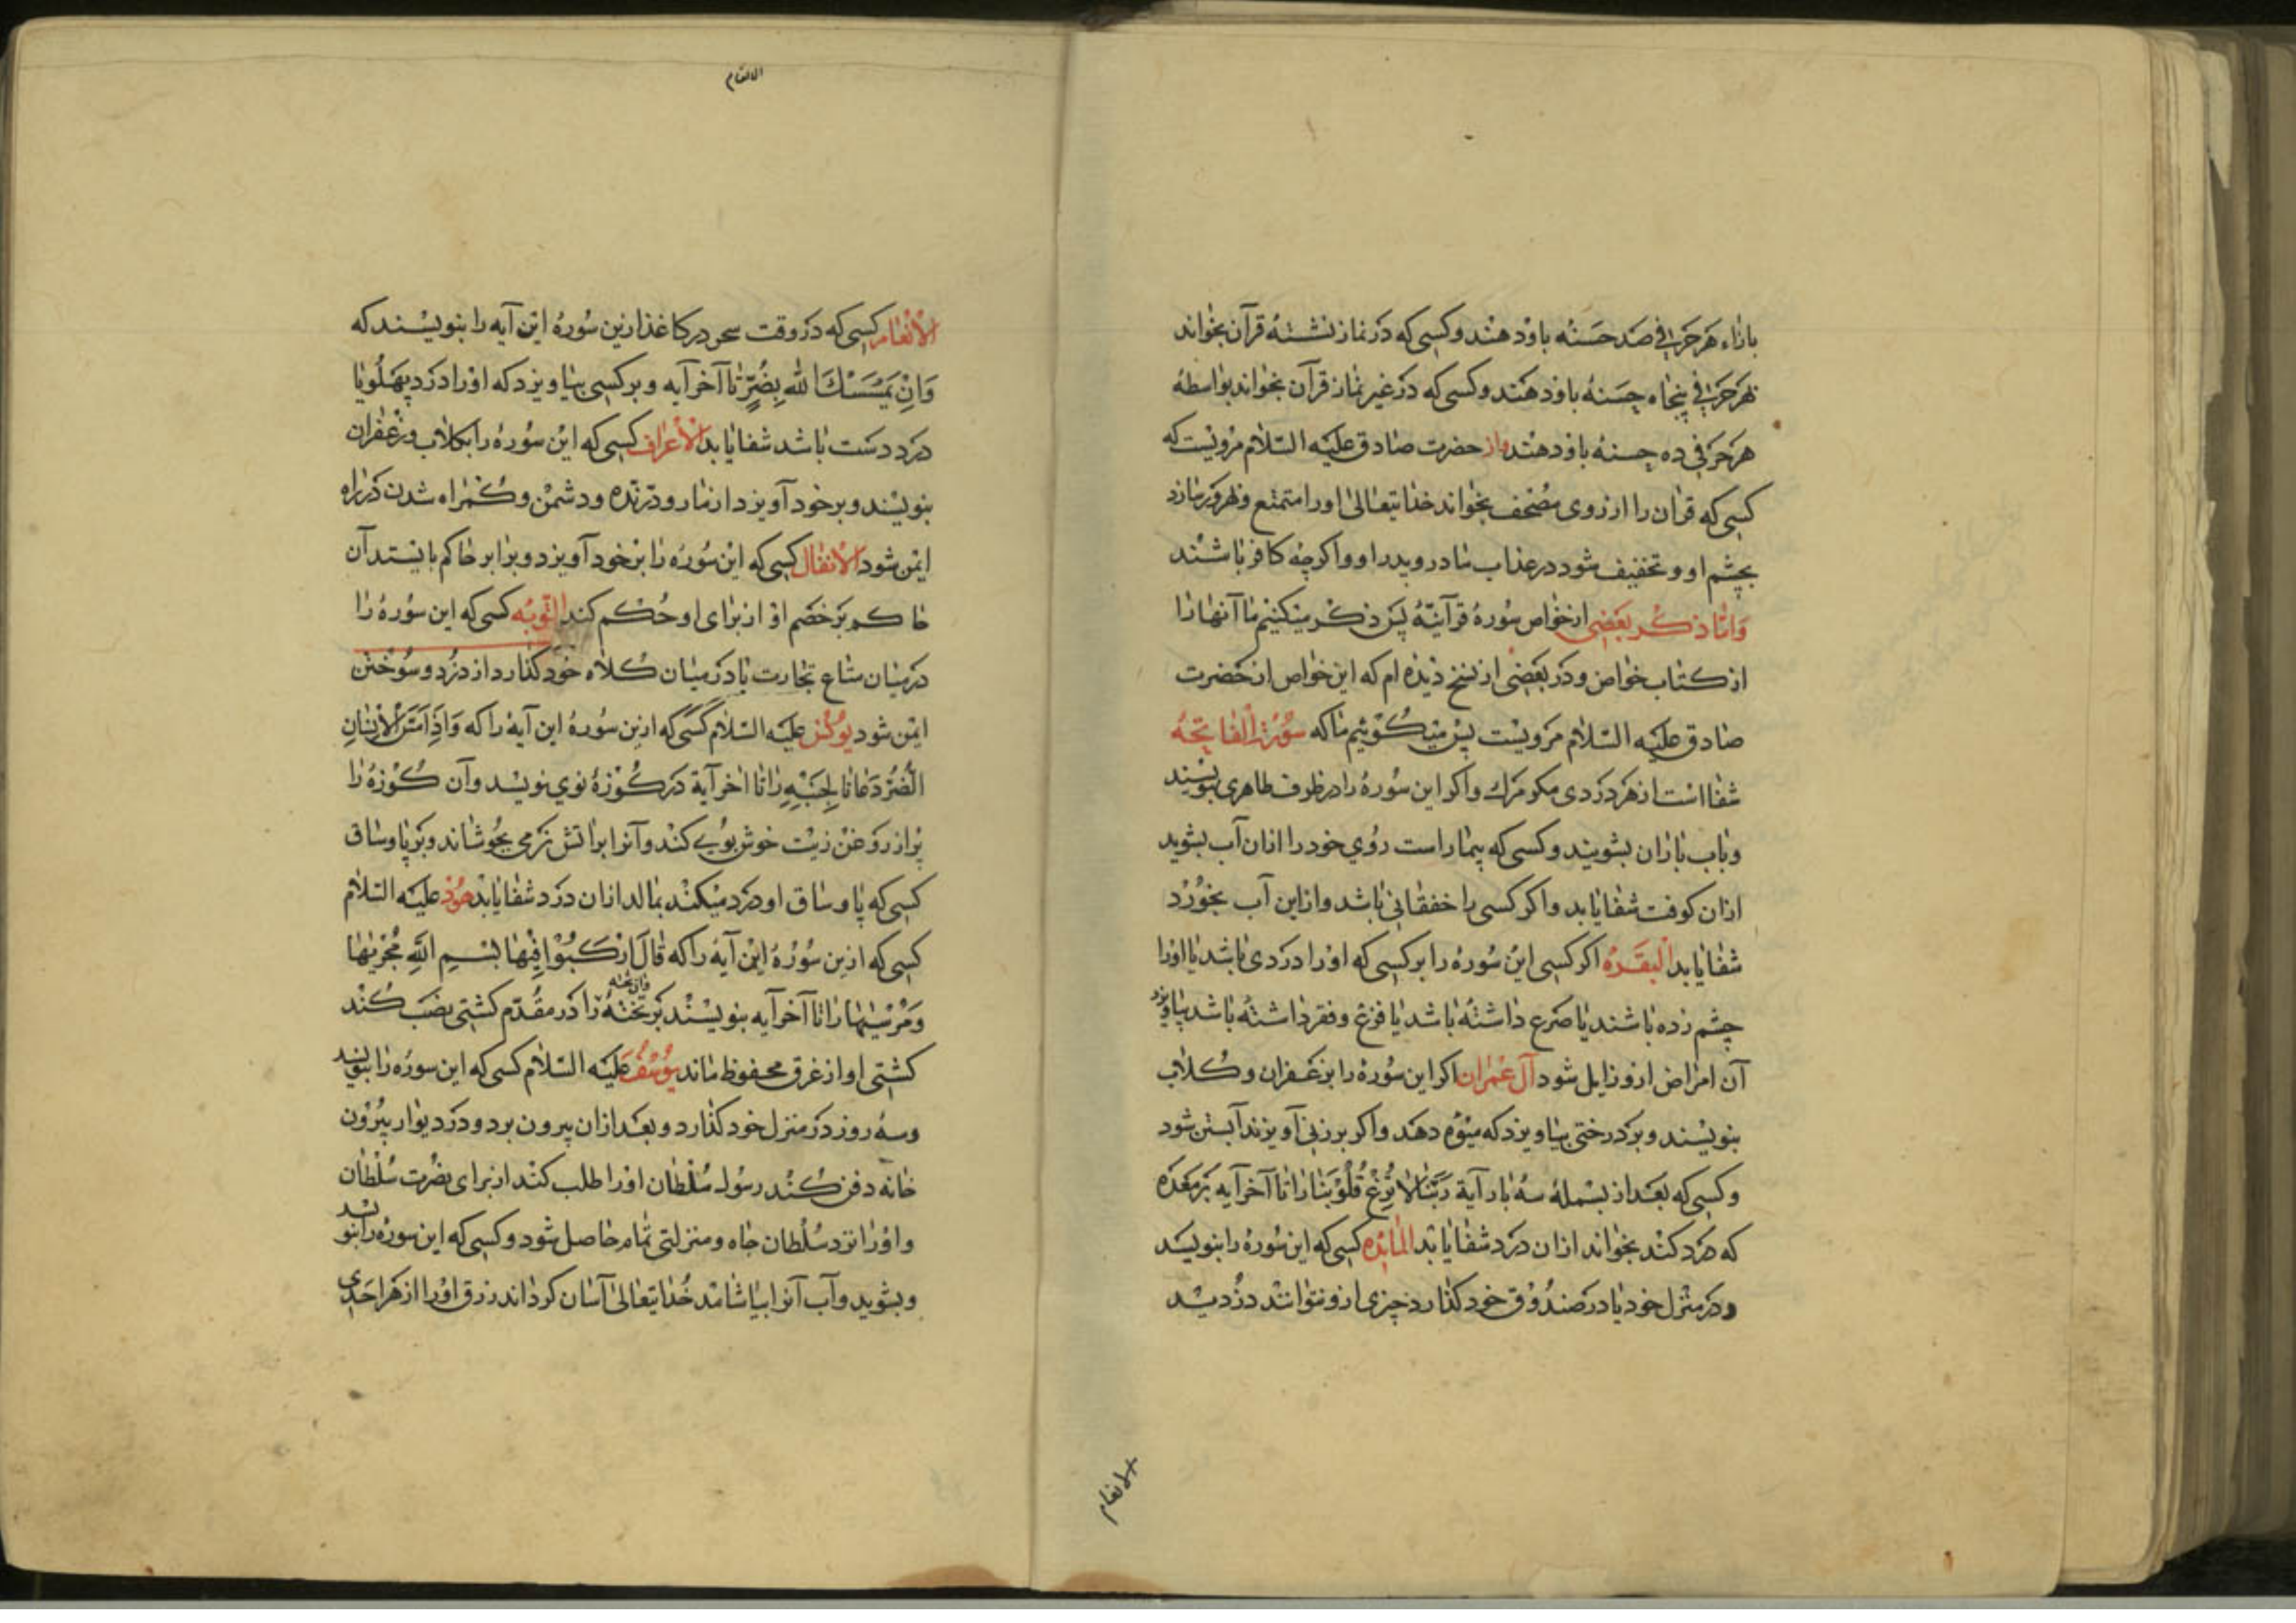 بازاء هر حرفی صد حسنه باو دهند و کسی که در نماز نشسته قرآن بخواند
هر حرفی پنجاه حسنه باو دهند و کسی که در غیر نماز قرآن بخواند بواسطه
هر حرفی ده حسنه باو دهند و از حضرت صادق علیه السلام مرویست که
کسی که قران را از روی مصحف بخواند خدایتعالی او را متمتع و بهرور سازد
بچشم او و تخفیف شود در عذاب مادر و پدر او و اکرچه کافر باشند
و اما ذکر بعضی از خواص سوره قرآنیه پس ذکر میکنیم ما آنها را
از کتاب خواص و در بعضی از نسخ دیده ام که این خواص از حضرت
صادق علیه السلام مرویست پس میکوئیم ما که سورة الفاتحه
شفا است از هر دردی مکر مرک و اکر این سوره را در ظرف طاهری بنویسند
و باب باران بشویند و کسی که بیمار است روی خود را ازان آب بشوید
ازان کوفت شفا یابد و اکر کسی را خفقانی باشد و ازاین آب بخورد
شفا یابد البقره اکر کسی این سوره را بر کسی که او را دردی باشد یا او را
چشم زده باشند یا صرع داشته باشد یا فزع و فقر داشته باشد بیاویزد
آن امراض ازو زایل شود آل عمران اکر این سوره را بزعفران و کلاب
بنویسند و بر درختی بیاویزد که میوه دهد و اکر بر زنی آویزند آبستن شود
و کسی که بعد از بسمله سه بار آیة ربنا لا تزغ قلوبنا را تا آخر آیه بر معده
که درد کند بخواند ازان درد شفا یابد المائده کسی که این سوره را بنویسد
و در منزل خود یا در صندوق خود کذارد چیزی ازو نتوانند دزدید
الانعام
الانعام
الأنعام کسی که در وقت سحر در کاغذ ازین سوره این آیه را بنویسند که
وَاِنْ يَمْسَسْكَ الله بِضُرٍّ تا آخر آیه و بر کسی بیاویزد که او را درد پهلو یا
درد دست باشد شفا یابد الأعراف کسی که این سوره را بکلاب و زعفران
بنویسند و بر خود آویزد از مار و درنده و دشمن و کمراه شدن در راه
ایمن شود الأنفال کسی که این سوره را بر خود آویزد و برابر حاکم بایستد آن
حاکم بر خصم او از برای او حکم کند التوبه کسی که این سوره را
در میان متاع تجارت یا در میان کلاه خود کذارد از دزد و سوختن
ایمن شود یونس علیه السلام کسی که ازین سوره این آیه را که وَاِذَا مَسَّ الْاِنْسَانَ
الضُّرُّ دَعَانَا لِجَنْبِهِ را تا اخر آیة در کوزۀ نوی بنویسد و آن کوزه را
پر از روغن زیت خوش بوی کند و آنرا بر اتش نرمی بجوشاند و بر پا و ساق
کسی که پا و ساق او درد میکند بمالد ازان درد شفا یابد هود علیه السلام
کسی که ازین سوره این آیه را که قَالَ ارْكَبُوْا فِيْهَا بِسْمِ اللهِ مُجْرٰيهَا
وَمُرْسٰيهَا را تا آخر آیه بنویسند بر تخته و آن تخته را در مقدم کشتی نصب کند
کشتی او از غرق محفوظ ماند یوسف علیه السلام کسی که این سوره را بنویسد
و سه روز در منزل خود کذارد و بعد ازان بیرون برد و در دیوار بیرون
خانه دفن کند رسول سلطان او را طلب کند از برای نصرت سلطان
و او را نزد سلطان جاه و منزلتی تمام حاصل شود و کسی که این سوره را بنویسد
و بشوید و آب آنرا بیاشامد خدایتعالی آسان کرداند رزق او را از هر احدی